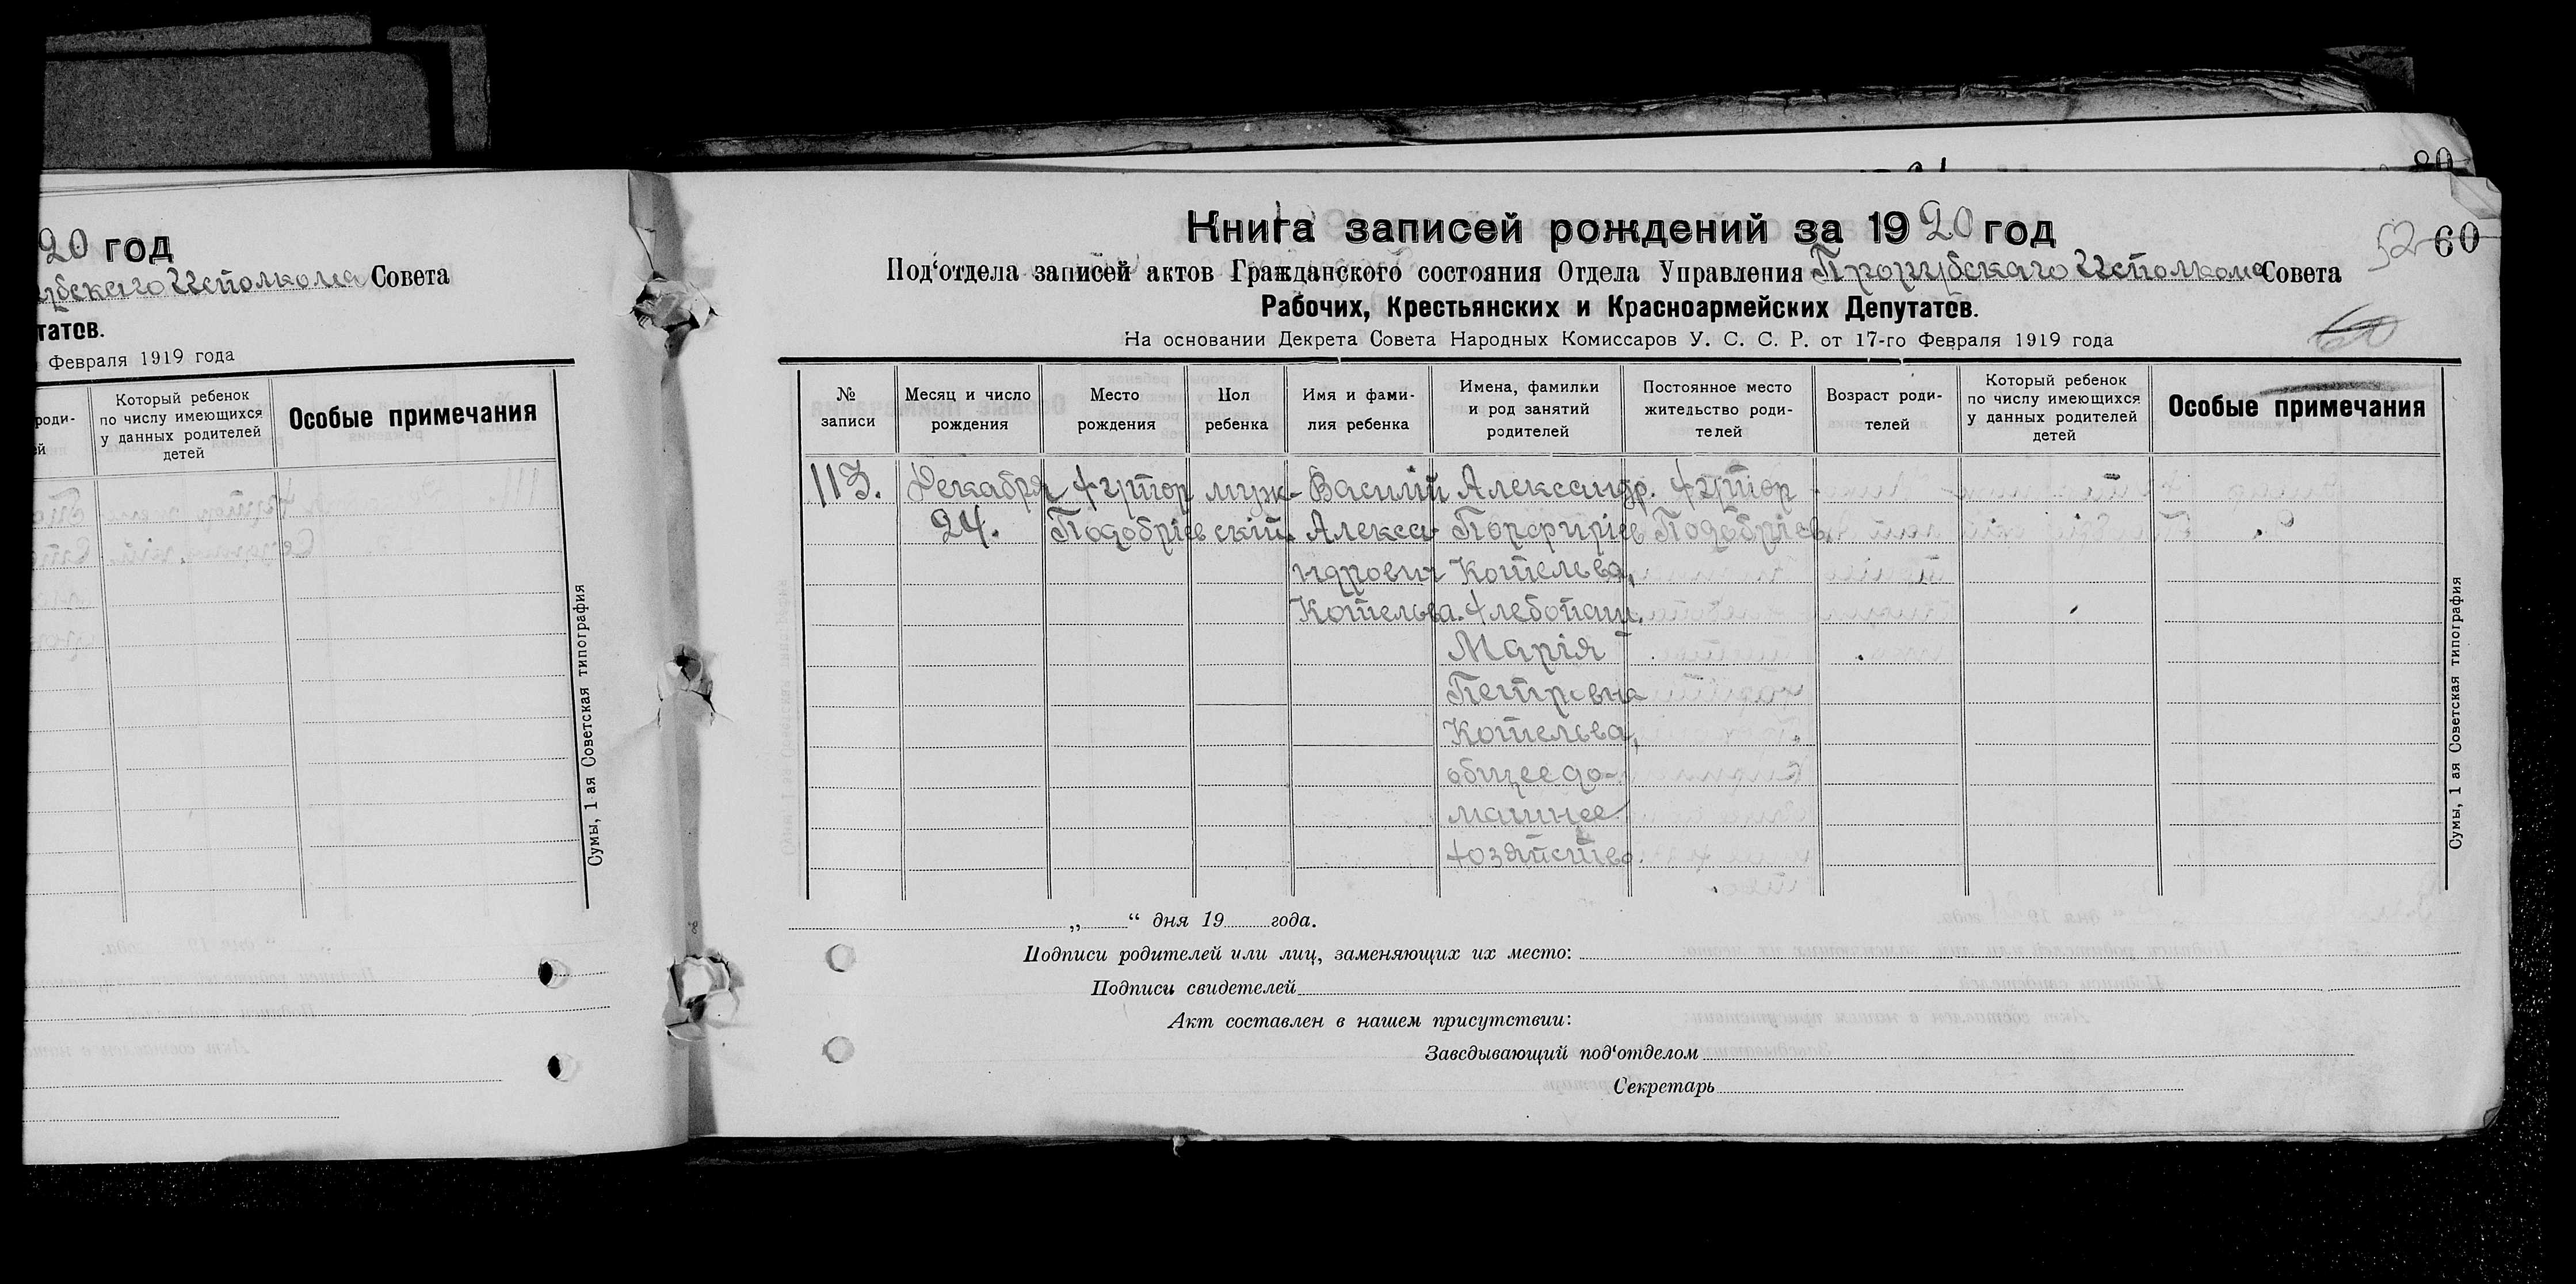 80
20 год
Исполкома Совета
татов.
Февраля 1919 года
роди-
й
Который ребенок
по числу имеющихся
у данных родителей
детей
Особые примечания
Сумы, 1 ая Советская типография
Книга записей рождений за 1920 год
52 60
Под'отдела записей актов Гражданского состояния Отдела Управления Прорубскаго Исполкома Совета
Рабочих, Крестьянских и Красноармейских Депутатов.
На основании Декрета Совета Народных Комиссаров У. С. С. Р. от 17-го Февраля 1919 года
60
№
записи
Месяц и число
рождения
Место
рождения
Пол
ребенка
Имя и фами-
лия ребенка
Имена, фамилии
и род занятий
родителей
Постоянное место
жительство роди-
телей
Возраст роди-
телей
Который ребенок
по числу имеющихся
у данных родителей
детей
Особые примечания
113.
Декабря
24.
Хутор
Подобріевскій.
муж-
Василій
Алекса-
ндрович
Котельва.
Александр.
Порфиріев
Котельва,
Хлебопаш.
Марія
Петровна
Котельва,
общее до-
машнее
хозяйство.
Хутор
Подобріев.
Сумы, 1 ая Советская типография
„ “ дня 19 года.
Подписи родителей или лиц, заменяющих их место:
Подписи свидетелей
Акт составлен в нашем присутствии:
Заведывающий под'отделом
Секретарь